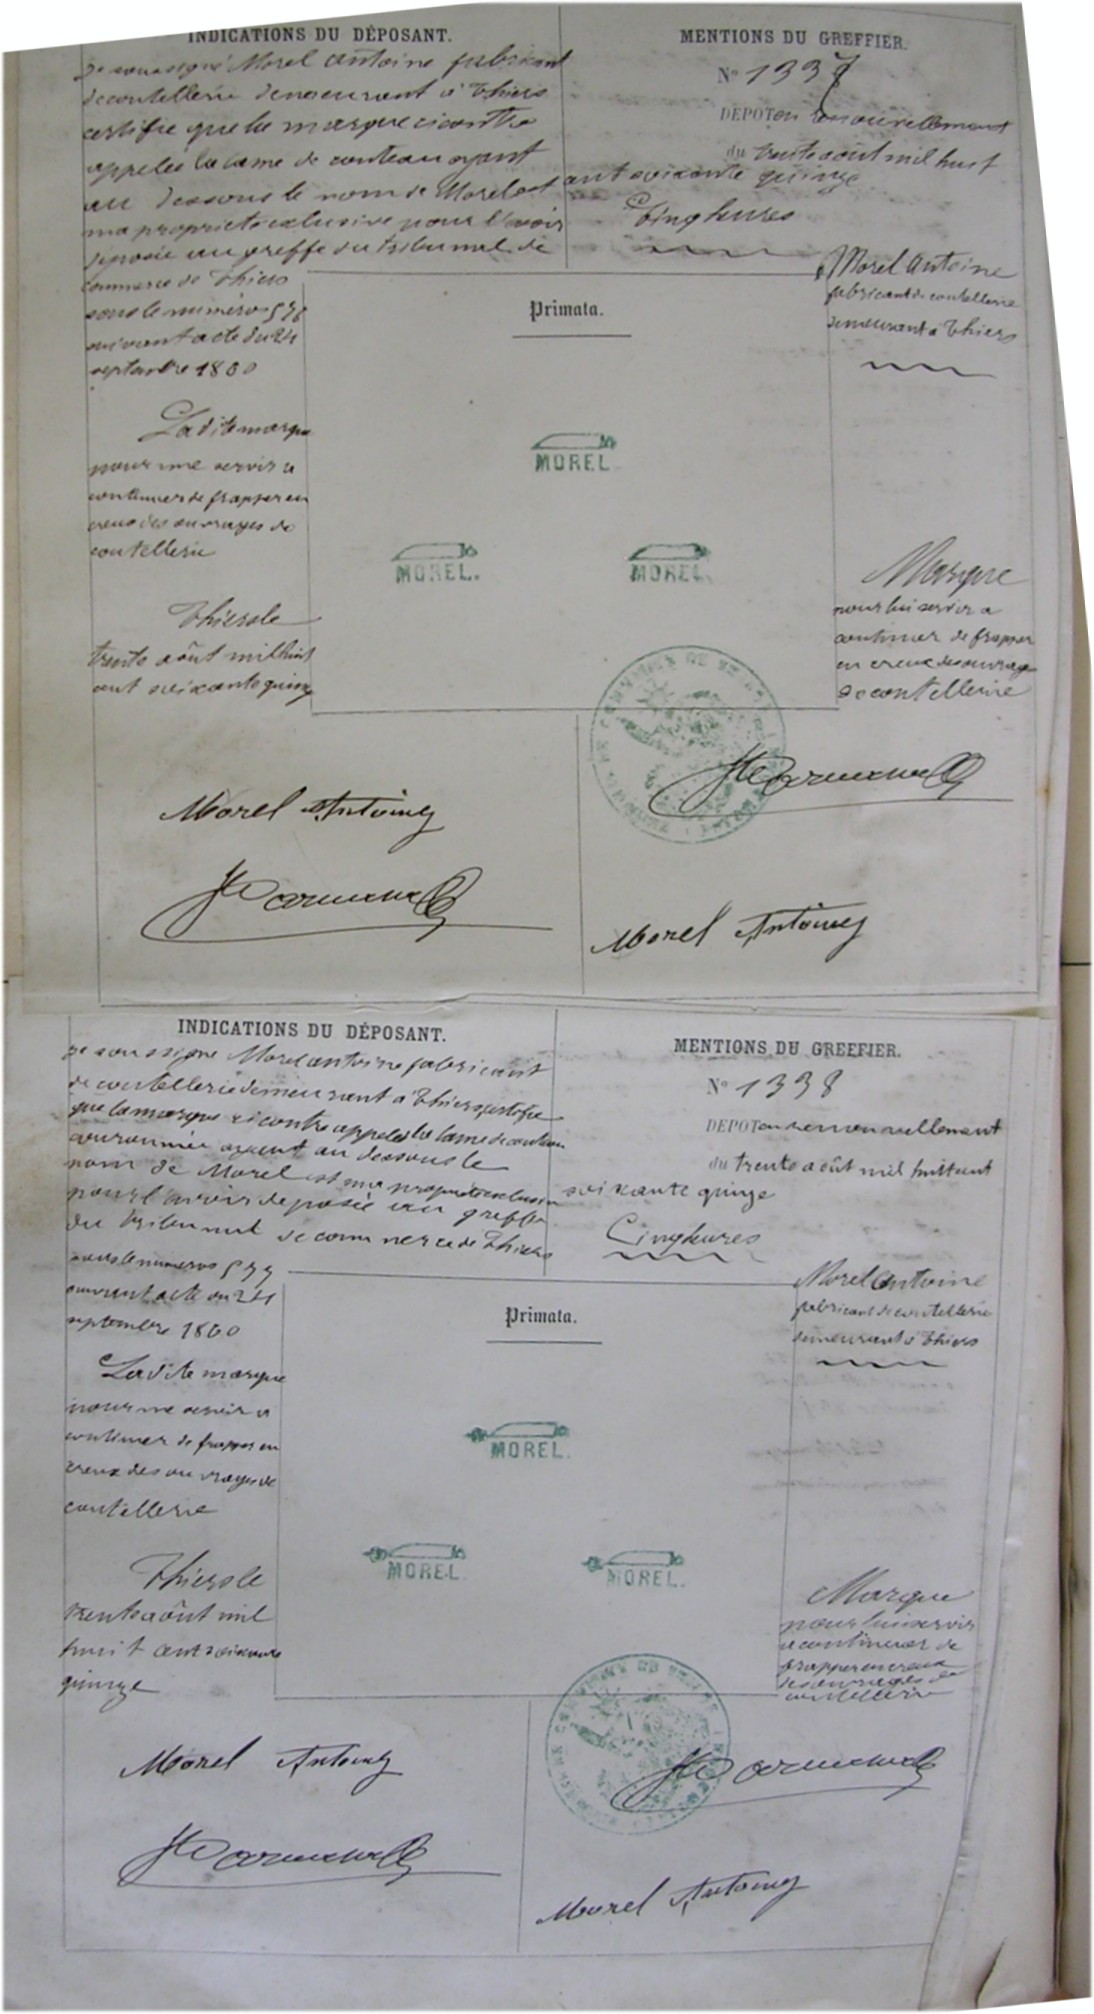 INDICATIONS DU DÉPOSANT.
Je soussigné Morel Antoine fabricant
de coutellerie demeurant à Thiers
certifie que la marque ci contre
appelée la lame de couteau ayant
au dessous le nom de Morel est
ma propriété exclusive pour l'avoir
déposée au greffe du tribunal de
commerce de Thiers
sous le numéros
suivant acte du 24
septembre 1860
La dite marque
pour me servir a
continuer de frapper en
creux des ouvrages de
coutellerie
Thiers le
trente août mil huit
cent soixante quinze
MENTIONS DU GREFFIER.
N° 1337
DÉPOT en renouvellement
du trente août mil huit
cent soixante quinze
Cinq heures
Morel Antoine
fabricant de coutellerie
demeurant à Thiers
Primata.
MOREL
MOREL.
MOREL.
Marque
pour lui servir a
continuer de frapper
en creux des ouvrages
de coutellerie
Morel Antoine
Morel Antoine
INDICATIONS DU DÉPOSANT.
Je soussigné Morel antoine fabricant
de coutellerie demeurant à Thiers certifie
que la marque ci contre appelée la lame de couteau
couronnée ayant au dessous le
nom de Morel est ma propriété exclusive
pour l'avoir déposée au greffe
du tribunal de commerce de Thiers
sous le numéros
suivant acte du 24
septembre 1860
La dite marque
pour me servir a
continuer de frapper en
creux des ouvrages de
coutellerie
Thiers le
trente août mil
huit cent soixante
quinze
MENTIONS DU GREFFIER.
N° 1338
DÉPOT en renouvellement
du trente août mil huit cent
soixante quinze
Cinq heures
Morel Antoine
fabricant de coutellerie
demeurant à Thiers
Primata.
MOREL.
MOREL.
MOREL.
Marque
pour lui servir
a continuer de
frapper en creux
des ouvrages de
coutellerie
Morel Antoine
Morel Antoine